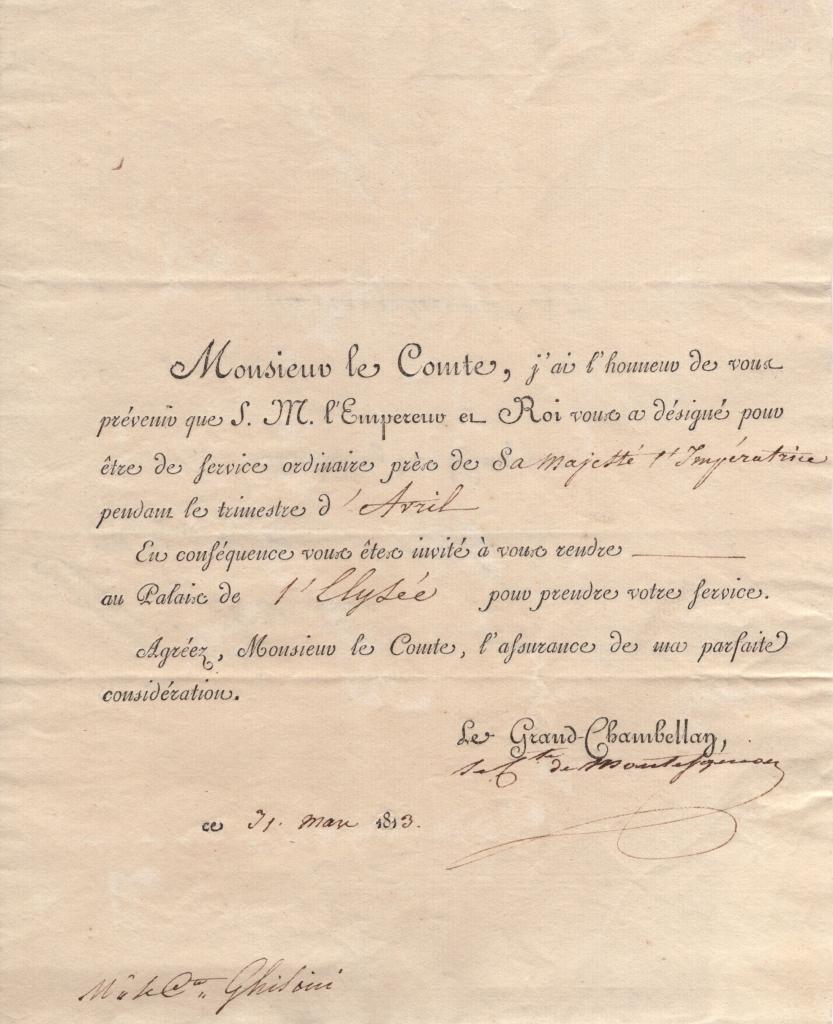 Monsieur le Comte, j'ai l'honneur de vous
prévenir que S. M. l'Empereur et Roi vous a désigné pour
être de service ordinaire près de Sa Majesté l'Impératrice
pendant le trimestre d'Avril
En conséquence vous êtes invité à vous rendre
au Palais de l'Elysée pour prendre votre service.
Agréez, Monsieur le Comte, l'assurance de ma parfaite
considération.
Le Grand-Chambellan,
le Cte de Montesquiou
ce 31. mars 1813.
Mr le Cte Ghisloni